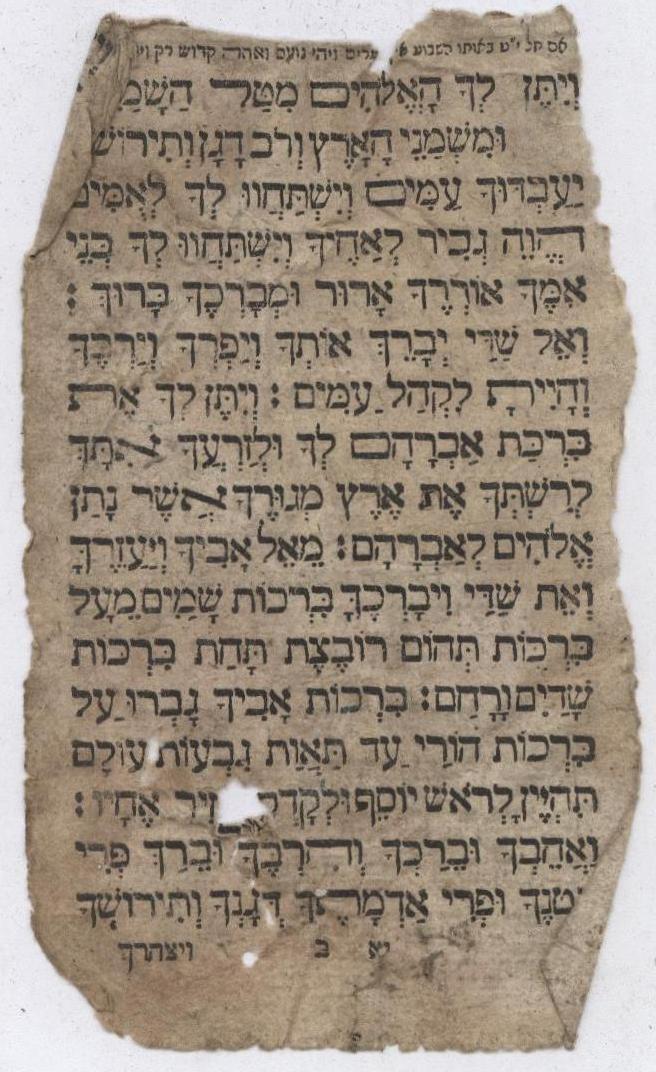 אם חל י"ט באותו השבוע אין אומרים ויהי נועם ואתה קדוש רק
וְיִתֶּן לְךָ הָאֱלֹהִים מִטַּל הַשָּׁמַ
וּמִשְׁמַנֵּי הָאָרֶץ וְרֹב דָּגָן וְתִירוֹשׁ
יַעַבְדוּךָ עַמִּים וְיִשְׁתַּחֲווּ לְךָ לְאֻמִּים
הֱוֵה גְבִיר לְאַחֶיךָ וְיִשְׁתַּחֲווּ לְךָ בְּנֵי
אִמֶּךָ אוֹרְרֶיךָ אָרוּר וּמְבָרְכֶךָ בָּרוּךְ :
וְאֵל שַׁדַּי יְבָרֵךְ אוֹתְךָ וְיַפְרְךָ וְיַרְבֶּךָ
וְהָיִיתָ לִקְהַל עַמִּים : וְיִתֶּן לְךָ אֶת
בִּרְכַּת אַבְרָהָם לְךָ וּלְזַרְעֲךָ אִתָּךְ
לְרִשְׁתְּךָ אֶת אֶרֶץ מְגוּרֶךָ אֲשֶׁר נָתַן
אֱלֹהִים לְאַבְרָהָם : מֵאֵל אָבִיךָ וְיַעְזְרֶךָּ
וְאֵת שַׁדַּי וִיבָרְכֶךָּ בִּרְכוֹת שָׁמַיִם מֵעָל
בִּרְכוֹת תְּהוֹם רוֹבֶצֶת תָּחַת בִּרְכוֹת
שָׁדַיִם וָרָחַם : בִּרְכוֹת אָבִיךָ גָּבְרוּ עַל
בִּרְכוֹת הוֹרַי עַד תַּאֲוַת גִּבְעוֹת עוֹלָם
תִּהְיֶיןָ לְרֹאשׁ יוֹסֵף וּלְקָדְקֹד נְזִיר אֶחָיו :
וַאֲהֵבְךָ וּבֵרַכְךָ וְהִרְבֶּךָ וּבֵרַךְ פְּרִי
בִטְנְךָ וּפְרִי אַדְמָתֶךָ דְּגָנְךָ וְתִירוֹשְׁךָ
יא ב ויצהרך